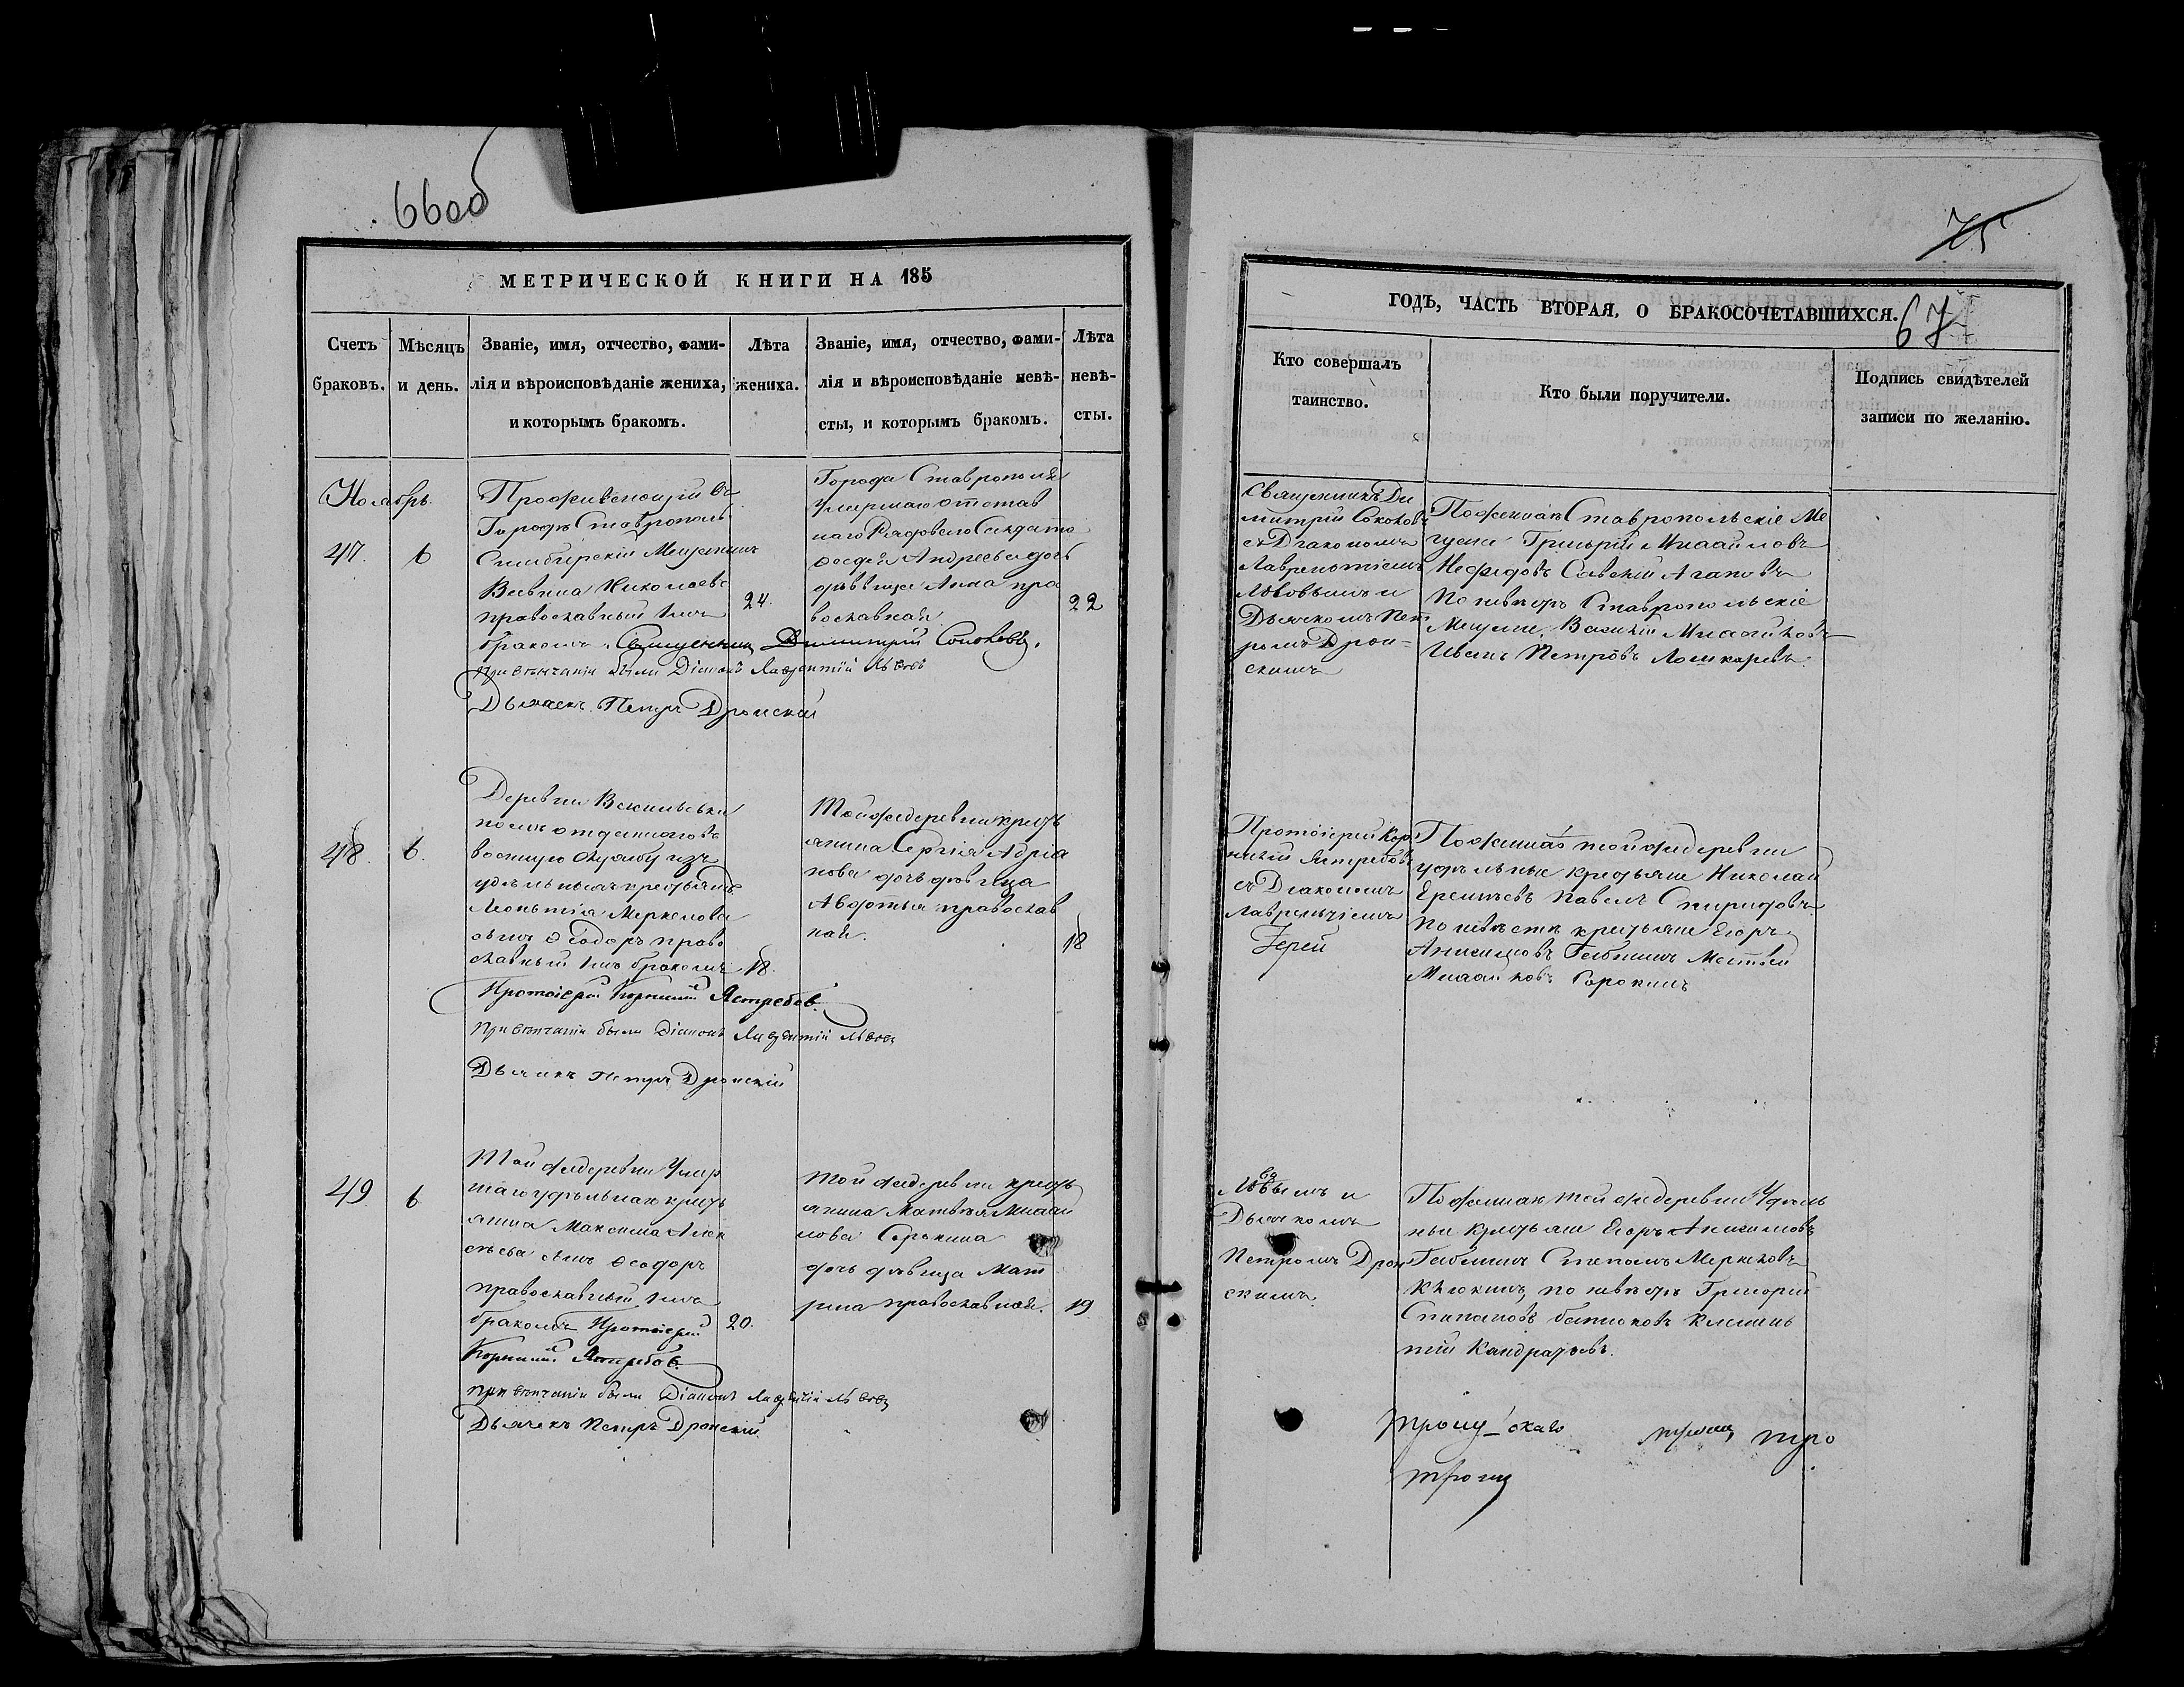 66об
МЕТРИЧЕСКОЙ КНИГИ НА 185
Счетъ браковъ.
Мѣсяцъ и день.
Званіе, имя, отчество, фами-
лія и вѣроисповѣданіе жениха,
и которымъ бракомъ.
Лѣта
жениха.
Званіе, имя, отчество, фами-
лія и вѣроисповѣданіе невѣ-
сты, и которымъ бракомъ.
Лѣта
невѣ-
сты.
Ноябрь.
47.
6
Проживающій въ
Городѣ Ставрополѣ
Симбирскій Мещанинъ
Николаевъ
православный 1мъ
бракомъ. Священникъ Димитрій Соколовъ.
при вѣнчаніи были Діаконъ Лаврентій Львовъ
Дьячекъ Петръ Дронскій
24.
Города Ставрополя
умершаго отстав
наго Рядоваго Солдата
Андреева дочь
дѣвица Анна пра
вославная.
22
48.
6.
Деревни
отданнаго въ
военную службу изъ
удѣльныхъ крестьянъ
Леонтія Меркулова
сынъ Ѳеодоръ право
славный 1мъ бракомъ
18.
Протоіерей Корнилій Ястребовъ.
при вѣнчаніи были Діаконъ Лаврентій Львовъ
Дьячекъ Петръ Дронскій
Той же деревни кресть
янина Сергія Адріа
нова дочь дѣвица
Авдотья православ
ная.
18
49
6
Той же деревни Умер
шаго удѣльнаго кресть
янина Максима Алек
сѣева сынъ Ѳеодоръ
православный 1мъ
бракомъ Протоіерей
20.
Корнилій Ястребовъ.
при вѣнчаніи были Діаконъ Лаврентій Львовъ
Дьячекъ Петръ Дронскій.
Той же деревни кресть
янина Матвѣя Михай
лова Сорокина
дочь дѣвица Мат
рена православная.
19
75
67
ГОДЪ, ЧАСТЬ ВТОРАЯ, О БРАКОСОЧЕТАВШИХСЯ.
Кто совершалъ
таинство.
Кто были поручители.
Подпись свидѣтелей
записи по желанію.
Священникъ Ди
митрій Соколовъ
съ Діакономъ
Лаврентіемъ
Львовымъ и
Дьячкомъ Пет
ромъ Дрон-
скимъ
По женихѣ Ставропольскіе Ме
щане Григорій Михайловъ
Нефедовъ Агаповъ
По невѣстѣ Ставропольскіе
Мещане, Василій Михайловъ
Иванъ Петровъ Лошкаревъ.
Протоіерей Кор
нилій Ястребовъ
съ Діакономъ
Лаврентіемъ
Іерей
По женихѣ той же деревни
удѣльные крестьяне Николай
Еремѣевъ Павелъ Спиридовъ
По невѣстѣ крестьяне Егоръ
Анисимовъ Матвѣй
Михайловъ Сорокинъ
Львовымъ и
Дьячкомъ
Петромъ Дрон
скимъ.
По женихѣ той же деревни Удѣль
ные крестьяне Егоръ Анисимовъ
Степанъ Меркуловъ
по невѣстѣ Григорій
Степановъ Клемен
тій Кандратьевъ.